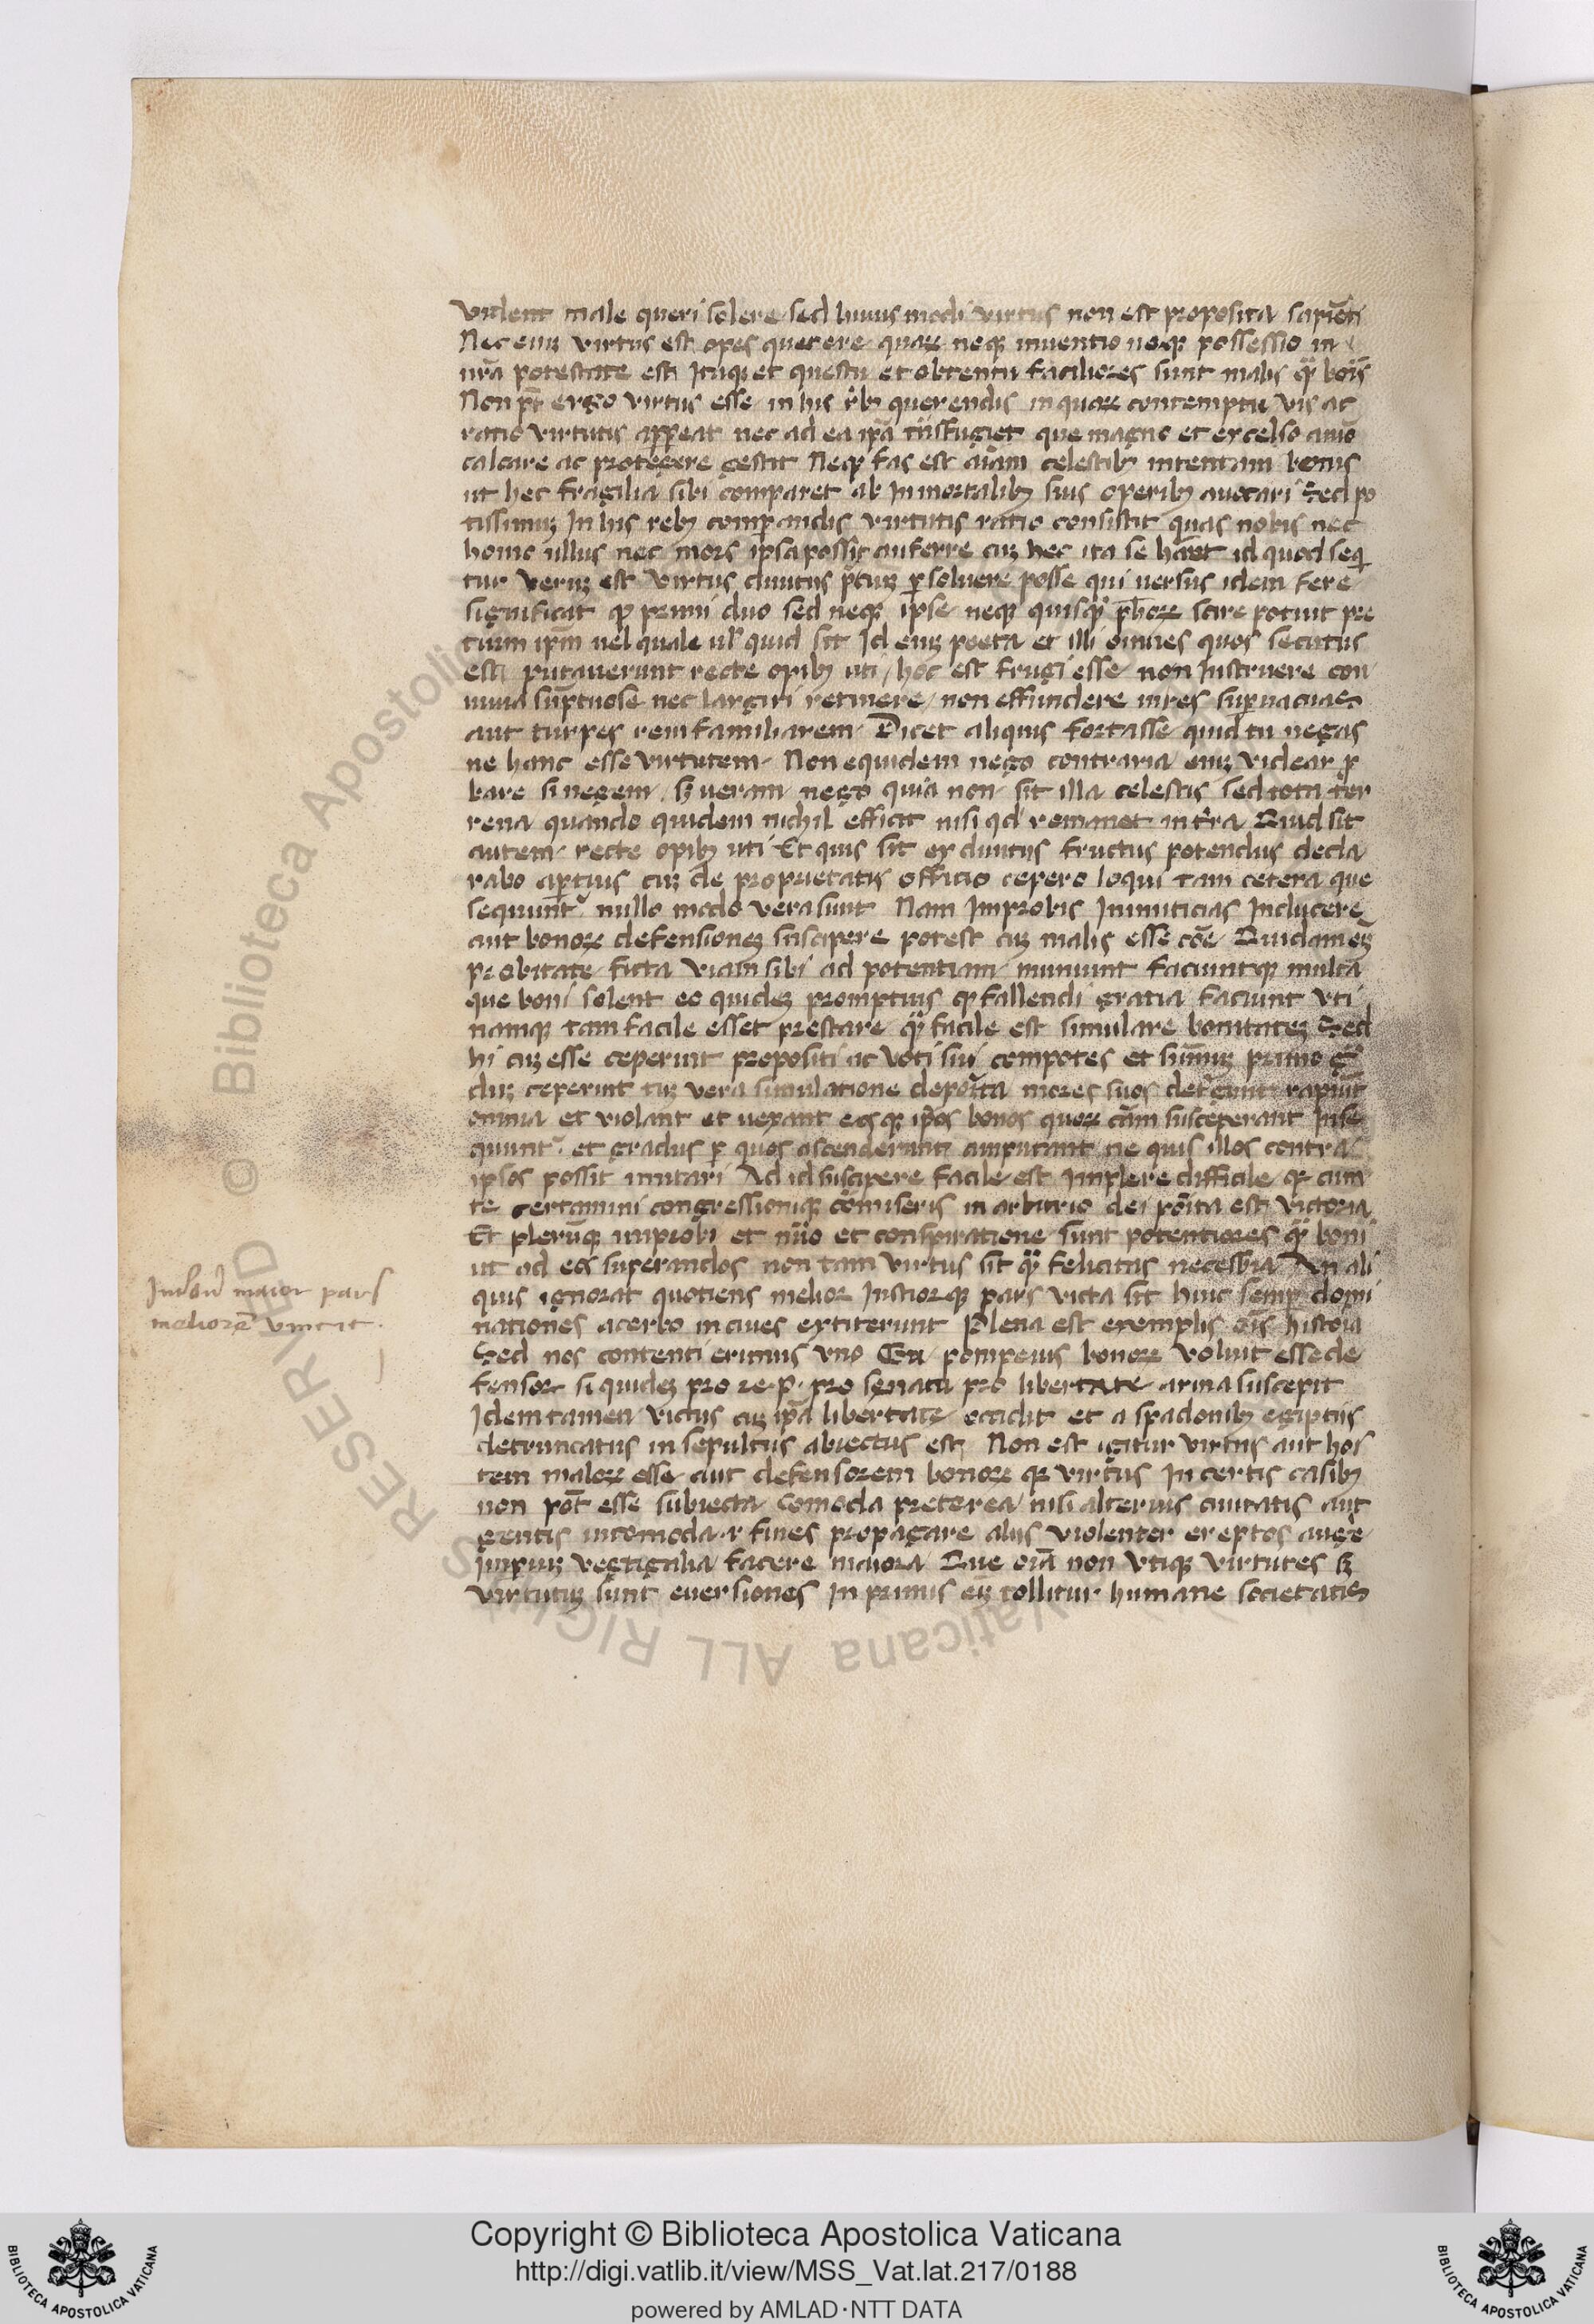 vident male queri solere sed huius modi virtus non est proposita sapiẽti
Nec eniꝫ virtus est opes querere quaꝝ neqꝫ inventio neqꝫ possessio in
nr̃a potestate est Itaqꝫ et questu et obtentu faciliores sunt malis qͣ̃ boĩs
Non pt̃ ergo virtus esse in his rebꝫ querendis in quaꝝ contemptu vis ac
ratio virtutis apꝑeat nec ad ea ip̃a trãsfugiet que magno et excelso aĩo
calcare ac protegere gestit Neqꝫ fas est aĩam celestibꝫ intentam bonis
ut hec fragilia sibi comparet ab Inmortalibꝫ suis operibꝫ avocari Sed po
tissimuꝫ In his rebꝫ compꝑandis virtutis ratio consistit quas nobis nec
homo ullus nec mors ipsa possit auferre cuꝫ hec ita se hãnt id quod seqͥ
tur veruꝫ est virtus divitiis p̃ciuꝫ ꝑsolvere posse qui versus idem fere
significat ꝙ primi duo sed neqꝫ ipse neqꝫ quisqͣ̃ ph̃oꝝ scire potuit pre
tium ip̃m vel quale vl̃ quid sit Id eniꝫ poeta et illi omnes quos secutus
est putaverunt recte opibꝫ uti / hoc est frugi esse non Instruere con
vivia sũptuose nec largiri retinere / non effundere in res suꝑvacuas
aut turpes rem familiarem Dicet aliquis fortasse quid tu negas
ne hanc esse virtutem Non equidem nego contraria eniꝫ videar ꝓ
bare si negem sꝫ veram nego quia non sit illa celestis sed tota ter
rena quando quidem nichil efficit nisi qd̃ remanet in tr̃ra Quid sit
autem recte opibꝫ uti Et quis sit ex divitiis fructus potendus decla
rabo aꝑtius cuꝫ de proprietatis officio cepero loqui tam cetera que
sequunt᷑ nullo modo vera sunt Nam Improbis Inimiticias Inducere
aut bonoꝝ defensioneꝫ suscipere potest cuꝫ malis esse cõe Quidam eñ
probitate ficta viam sibi ad potentiam muniunt faciuntqꝫ multa
que boni solent eo quideꝫ promptius ꝙ fallendi gratia faciunt vti
namqꝫ tam facile esset prestare qͣ̃ facile est simulare bonitateꝫ Sed
hi cuꝫ esse ceperint propositi ac voti sui compotes et sum̃uꝫ primo gͣ
duꝫ ceperint tuꝫ vera simulatione depoita mores suos detegunt rapiũt
omnia et violant et vexant eosqꝫ ip̃os bonos quoꝝ cãm susceperant Inse
quunt᷑ et gradus ꝑ quos ascenderunt amputant ne quis illos contra
ipsos possit imitari Ad id suscipere facile est Implere difficile qꝛ cum
te certamini congressioniqꝫ cõmiseris in arbitrio dei põita est victoria
Et plerũqꝫ improbi et nũo et conspiratione sunt potentiores qͣ̃ boni
ut ad eos superandos non tam virtus sit qͣ̃ felicitas necessaria An ali
quis ignorat quotiens melior Iustiorqꝫ pars victa sit hinc semꝑ domi
nationes acerbo in cives extiterunt Plena est exemplis oĩs historia
Sed nos contenti erimus vno Gn pompeius bonoꝝ voluit esse de
fensor si quideꝫ pro re.p. pro senatu pro libertate arma suscepit
Idem tamen victus cuꝫ ip̃a libertate occidit et a spadonibꝫ egiptiis
detruncatus in sepultus abiectus est Non est igitur virtus aut hos
tem maloꝝ esse aut defensorem bonoꝝ qꝛ virtus In certis casibꝫ
non põt esse subiecta Comoda preterea nisi alterius civitatis aut
gentis incomoda .i. fines propagare aliis violenter ereptos auge
Imꝑiuꝫ vegtigalia facere maiora Que oĩa non vtiqꝫ virtutes sꝫ
virtutuꝫ sunt eversiones In primis eñ tollitur humane societatis
maior pars
meliorẽ vincit.
Copyright © Biblioteca Apostolica Vaticana
http://digi.vatlib.it/view/MSS_Vat.lat.217/0188
powered by AMLAD·NTT DATA